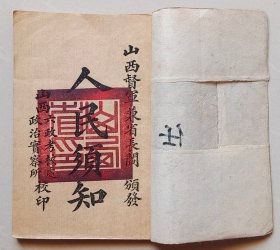 山西督軍兼省長閻 頒發
人民須知
山西六政考核處
政治實察所校印